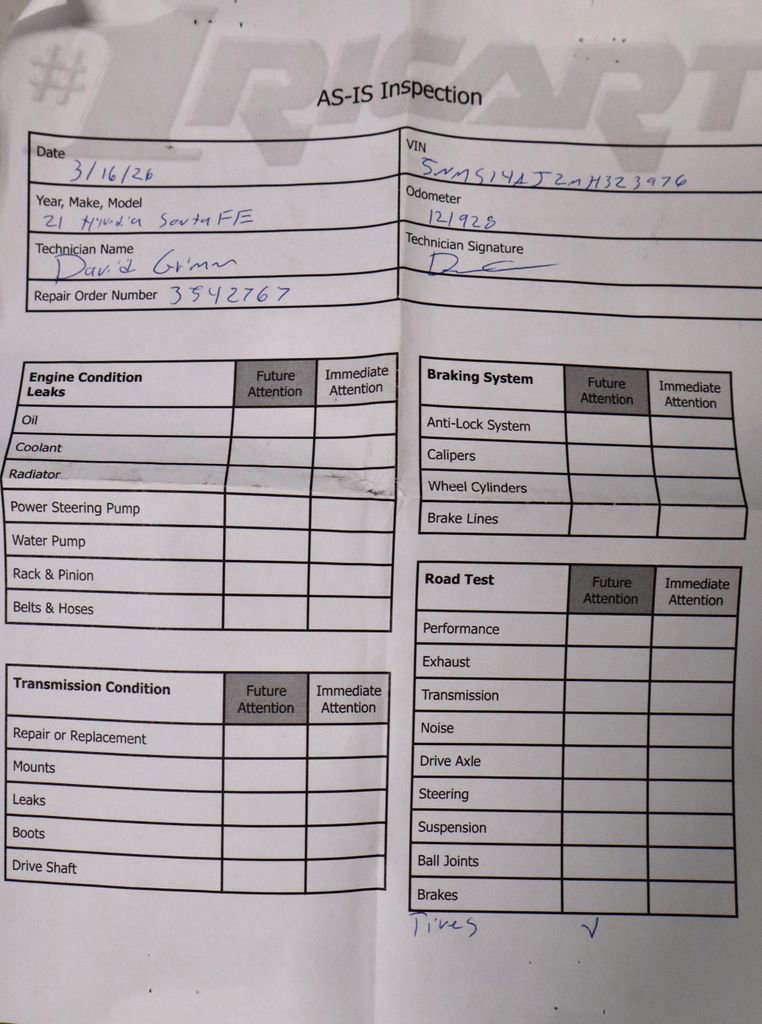 #1RICART
AS-IS Inspection
Date
3/16/26
VIN
5NMS14AJ2MH323976
Year, Make, Model
21 Hyundia Santa FE
Odometer
121928
Technician Name
David Grimm
Technician Signature
Repair Order Number 3542767
Engine Condition
Leaks
Future
Attention
Immediate
Attention
Oil
Coolant
Radiator
Power Steering Pump
Water Pump
Rack & Pinion
Belts & Hoses
Transmission Condition
Future
Attention
Immediate
Attention
Repair or Replacement
Mounts
Leaks
Boots
Drive Shaft
Braking System
Future
Attention
Immediate
Attention
Anti-Lock System
Calipers
Wheel Cylinders
Brake Lines
Road Test
Future
Attention
Immediate
Attention
Performance
Exhaust
Transmission
Noise
Drive Axle
Steering
Suspension
Ball Joints
Brakes
Tires ✓